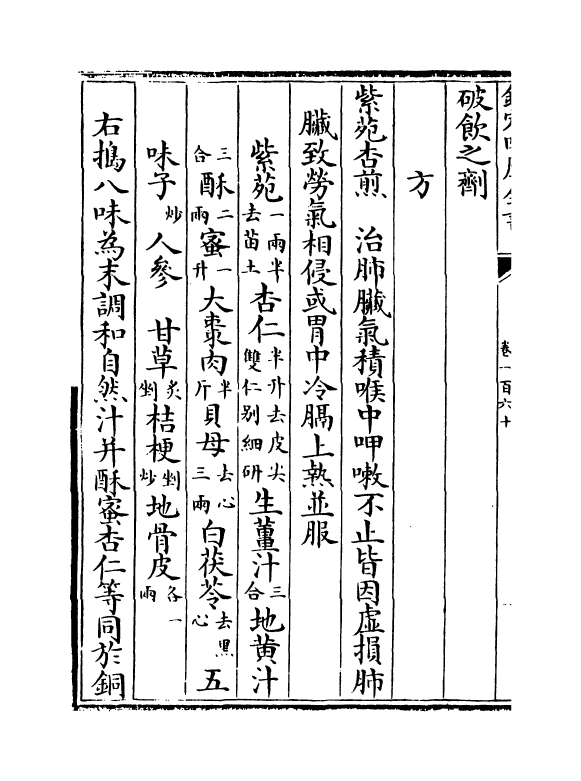 欽定四庫全書
卷一百六十
破飲之劑
方
紫苑杏煎　治肺臟氣積喉中呷嗽不止皆因虛損肺
臟致勞氣相侵或胃中冷膈上熱並服
紫苑一兩半去苗土杏仁半升去皮尖雙仁别細研生薑汁三合地黄汁
三合酥二兩蜜一升大棗肉半斤貝母去心三兩白茯苓去黑心五
味子炒人參　甘草炙剉桔梗剉炒地骨皮各一兩
右搗八味為末調和自然汁并酥蜜杏仁等同於銅